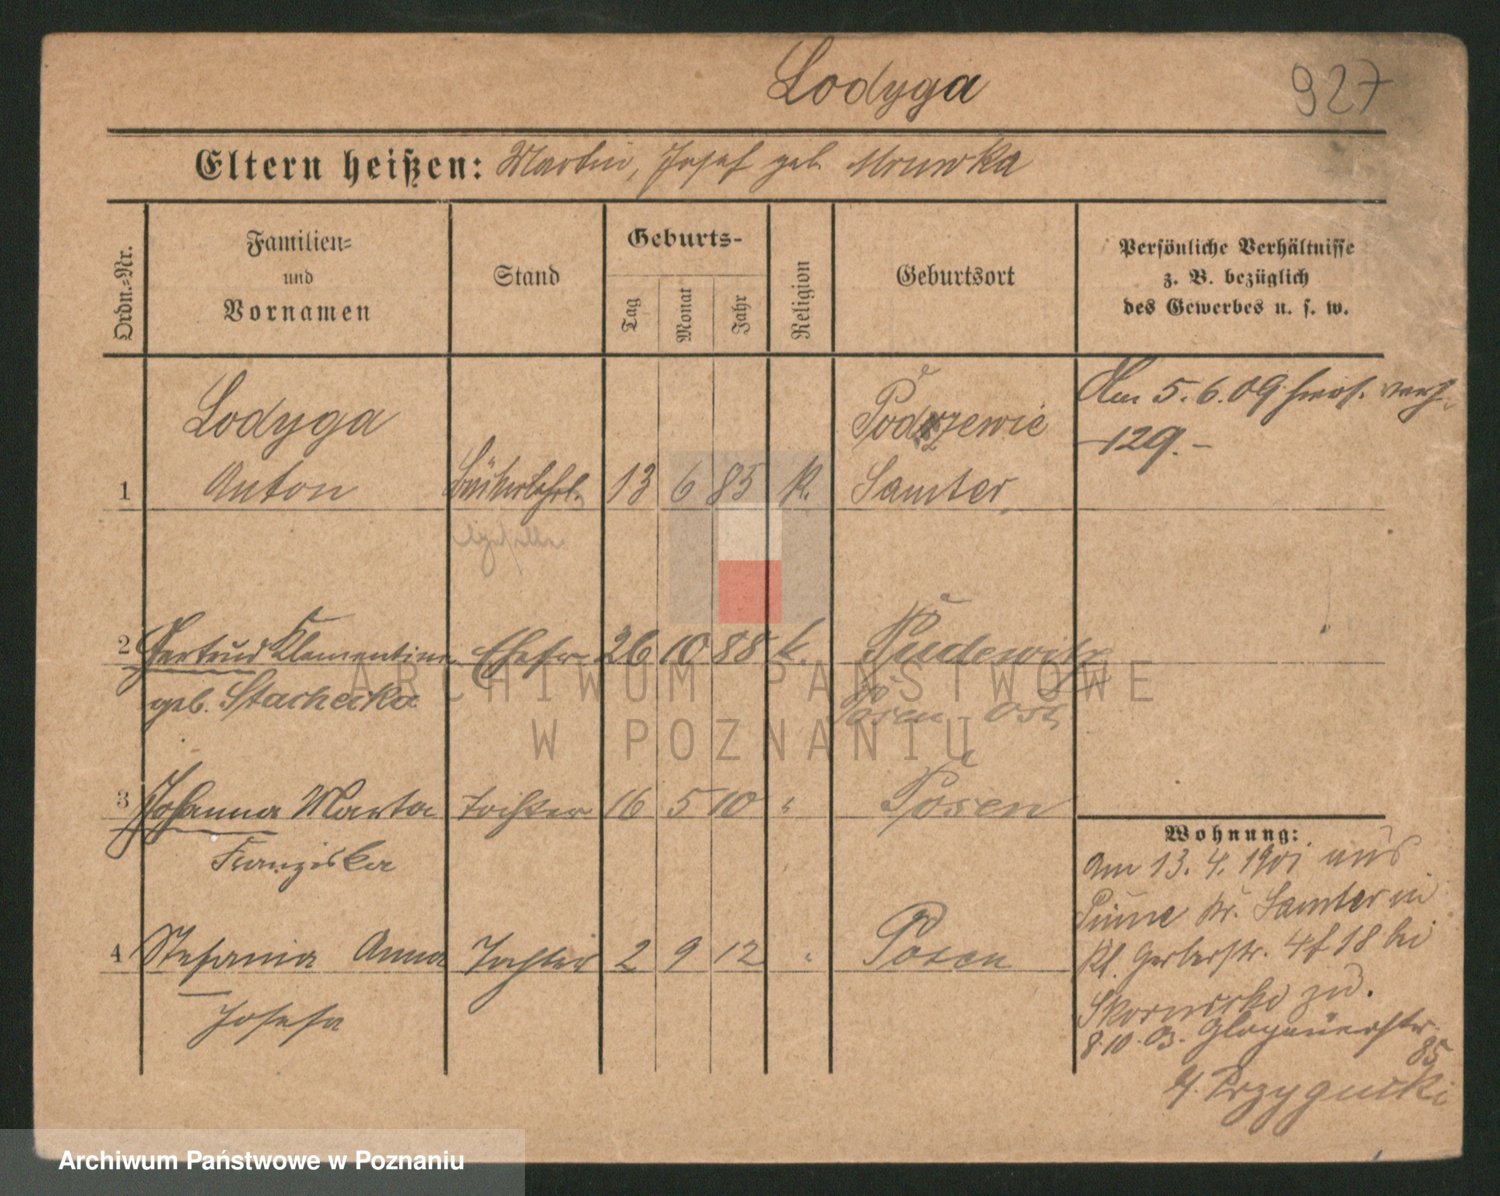 Lodyga
927
Eltern heißen: Martin, Josef geb. Mruwka
Ordn.-Nr.
Familien-
und
Vornamen
Stand
Geburts-
Tag
Monat
Jahr
Religion
Geburtsort
Persönliche Verhältnisse
z. B. bezüglich
des Gewerbes u. s. w.
Lodyga
1 Anton Bäckerlehrl. 13 6 85 k.
Podrzewie
Samter
Am 5.6.09
129.-
2 Gertrud Klementine Ehefr 26 10 88 k. Pudewitz
geb. Stachecka
Posen Ost
3 Johanna Marta Tochter 16 5 10 " Posen
Franziska
4 Stefania Anna Tochter 2 9 12 " Posen
Josefa
Wohnung:
Am 13.4.1901 aus
Pinne Kr. Samter in
Kl. Gerberstr. 4 f 18 bei
zu.
8.10.03. Glogauerstr.
85
ARCHIWUM PAŃSTWOWE
W POZNANIU
Archiwum Państwowe w Poznaniu